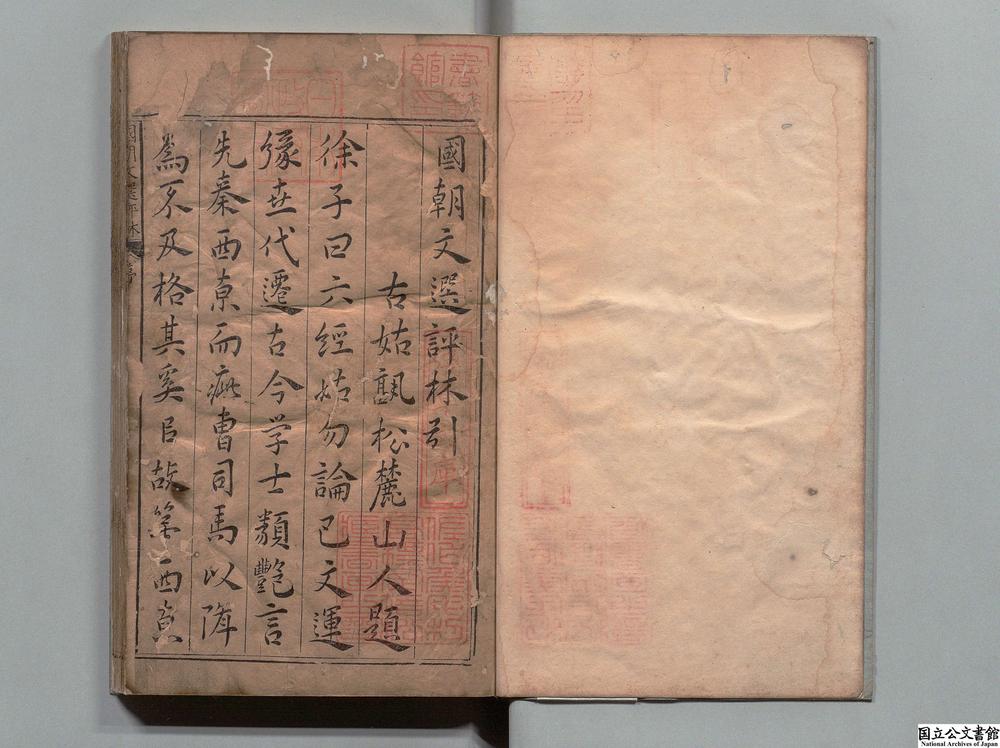 國朝文選評林引
古姑瓢松麓山人題
徐子曰六經姑勿論已文運
彖世代遷古今学士類艷言
先秦西京而疵曹司馬以降
為不及格其奚㠯故第西京
国立公文書館
National Archives of Japan